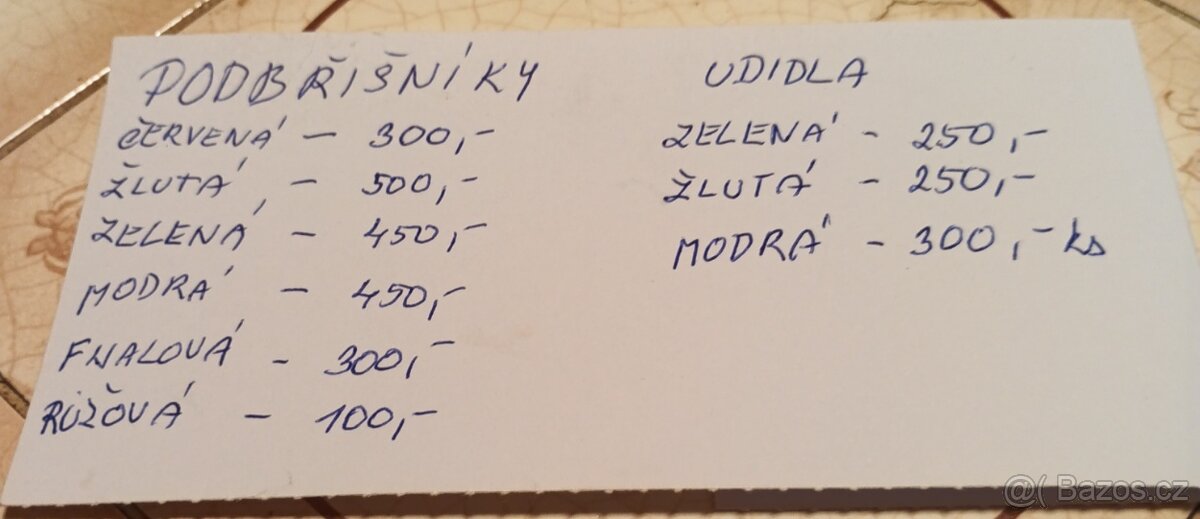 PODBŘIŠNÍKY
ČERVENÁ - 300,-
ŽLUTÁ - 500,-
ZELENÁ - 450,-
MODRÁ - 450,-
FIALOVÁ - 300,-
RŮŽOVÁ - 100,-
UDIDLA
ZELENÁ - 250,-
ŽLUTÁ - 250,-
MODRÁ - 300,- ks
@( Bazos.cz